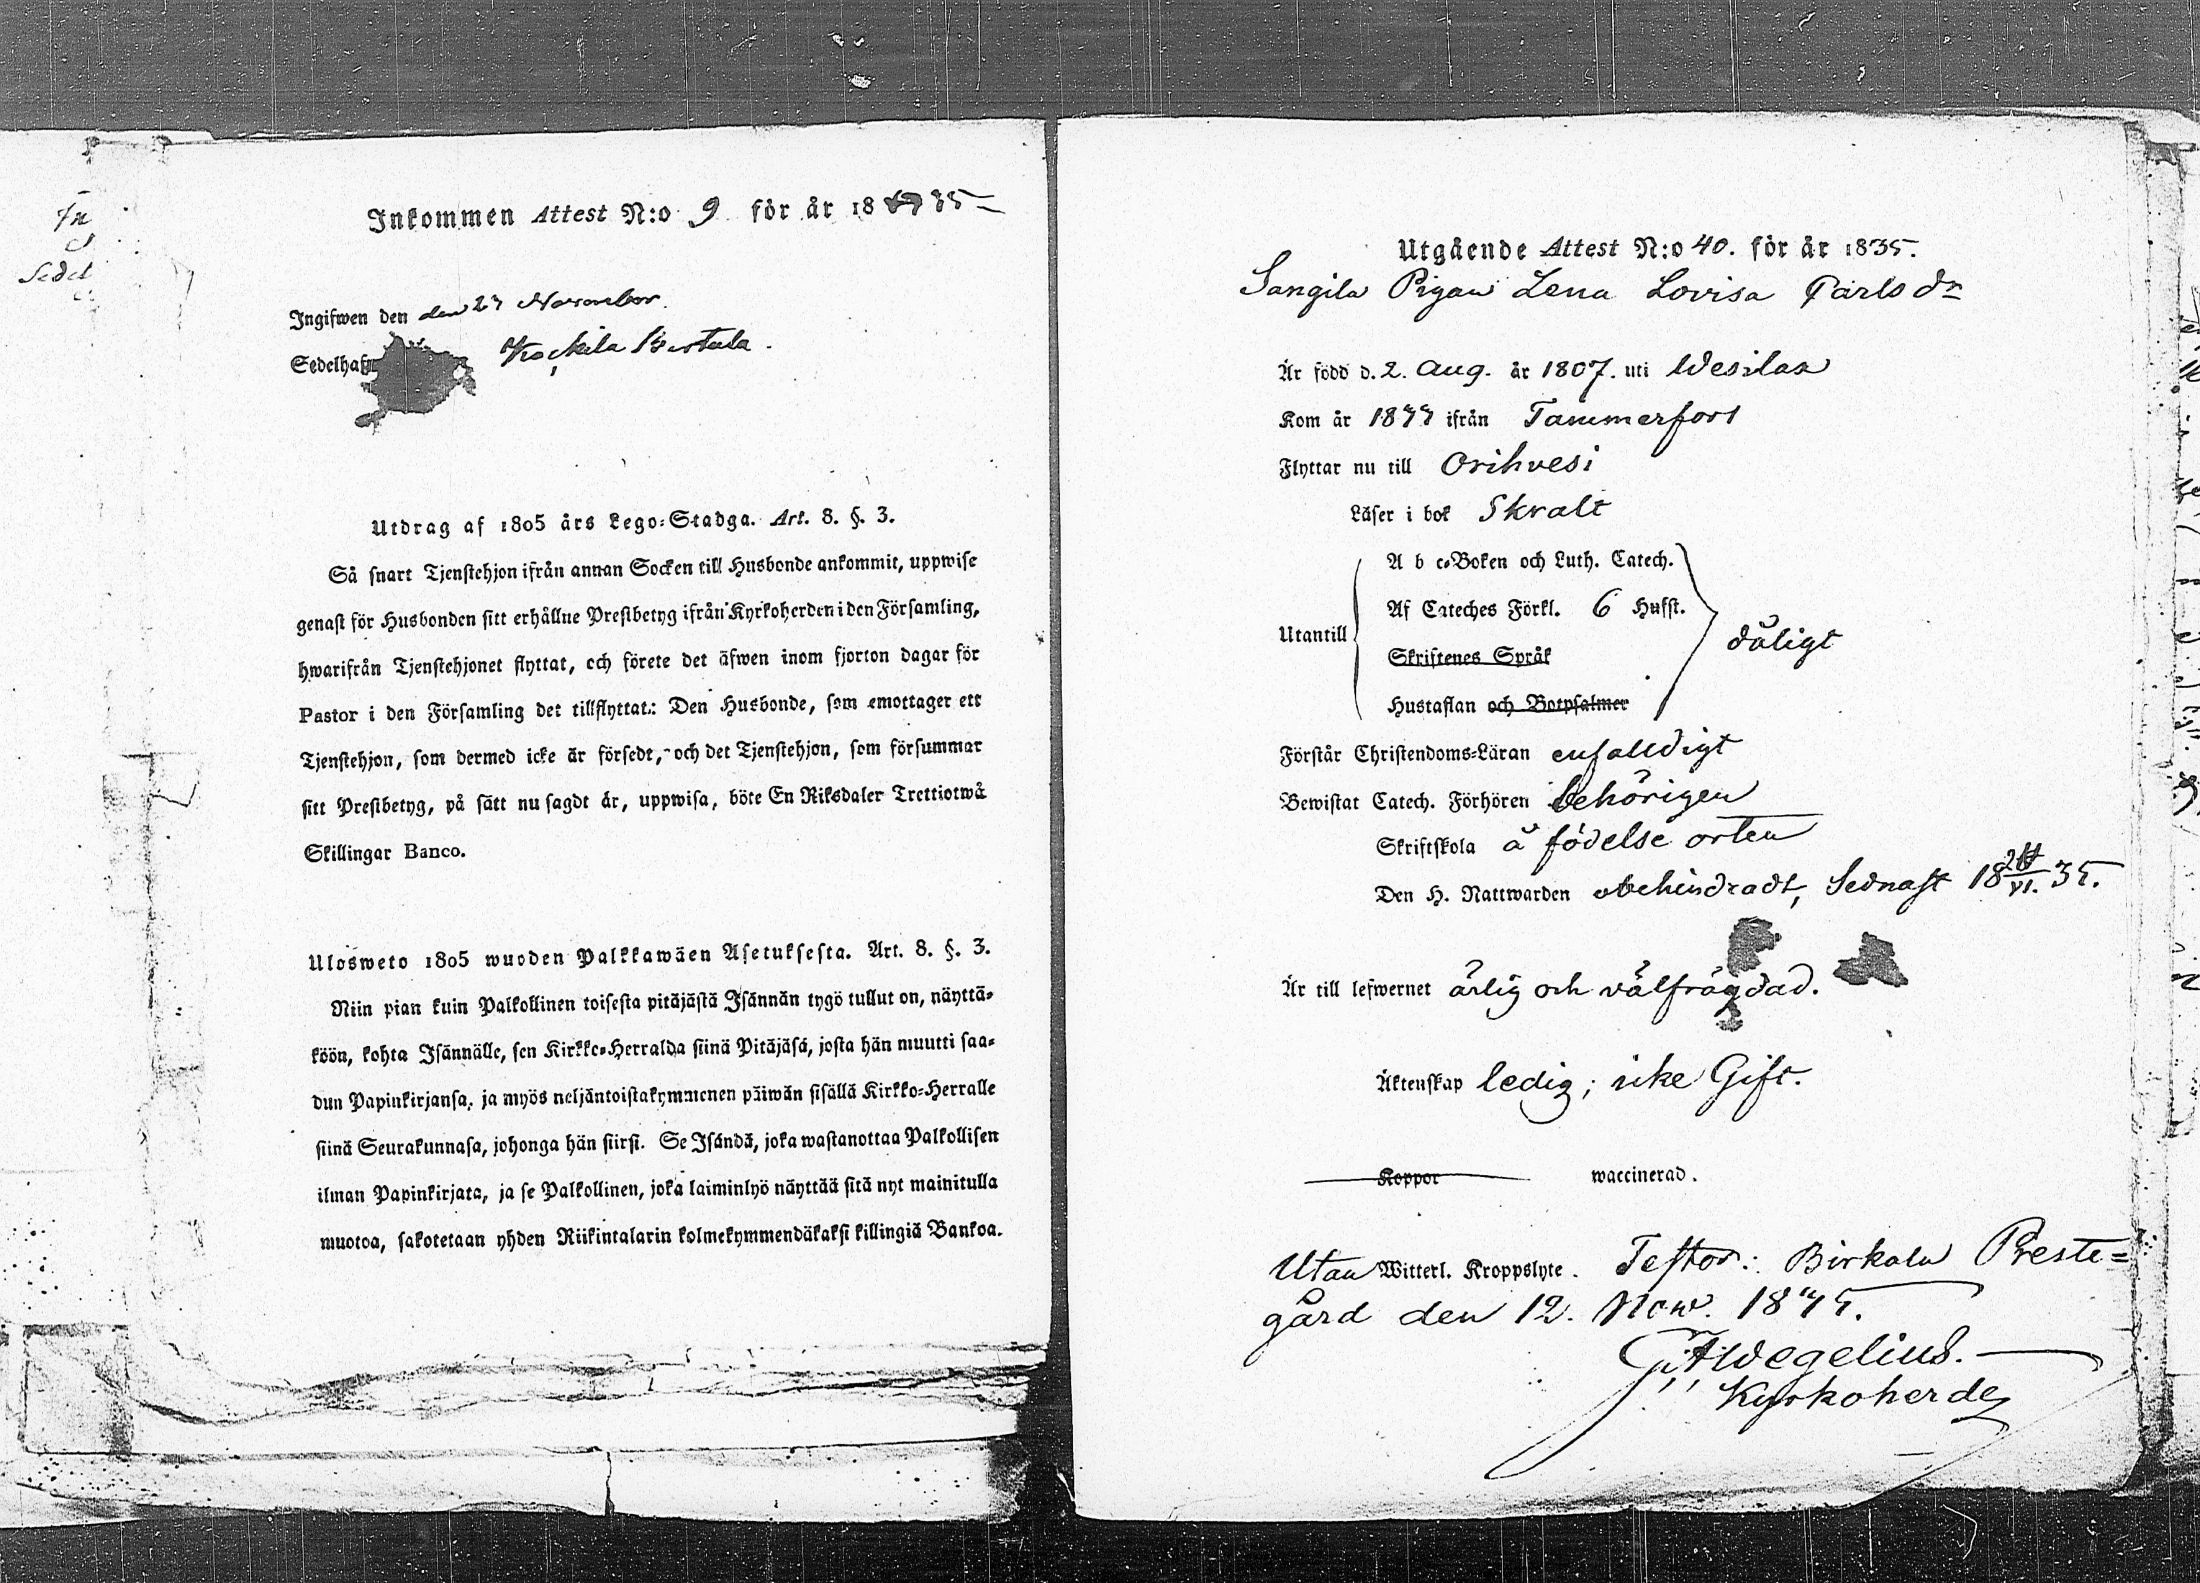 In
Sedel
Inkommen Attest N:o 9 för år 1835
Ingifwen den den 23 November
Sedelhaf
Utdrag af 1805 års Lego-Stadga. Art. 8. §. 3.
Så snart Tjenstehjon ifrån annan Socken till Husbonde ankommit, uppwise
genast för Husbonden sitt erhållne Prestbetyg ifrån Kyrkoherden i den Församling,
hwarifrån Tjenstehjonet flyttat, och förete det äfwen inom fjorton dagar för
Pastor i den Församling det tillflyttat: Den Husbonde, som emottager ett
Tjenstehjon, som dermed icke är försedt, och det Tjenstehjon, som försummar
sitt Prestbetyg, på sätt nu sagdt är, uppwisa, böte En Riksdaler Trettiotwå
Skillingar Banco.
Ulosweto 1805 wuoden Palkkawäen Asetuksesta. Art. 8. §. 3.
Niin pian kuin Palkollinen toisesta pitäjästä Isännän tygö tullut on, näyttä-
köön, kohta Isännälle, sen Kirkko-Herralda siinä Pitäjäsä, josta hän muutti saa-
dun Papinkirjansa, ja myös neljäntoistakymmenen päiwän sisällä Kirkko-Herralle
siinä Seurakunnasa, johonga hän siirsi. Se Isändä, joka wastanottaa Palkollisen
ilman Papinkirjata, ja se Palkollinen, joka laiminlyö näyttää sitä nyt mainitulla
muotoa, sakotetaan yhden Riikintalarin kolmekymmendäkaksi killingiä Bankoa.
Utgående Attest N:o 40. för år 1835.
Sangila Pigan Lena Lovisa Carlsdr
Är född d. 2. Aug. år 1807. uti Wesilax
Kom år 1833 ifrån Tammerfors
Flyttar nu till Orihvesi
Läser i bok Skralt
A b c-Boken och Luth. Catech.
Af Cateches Förkl. 6 Hufst.
Utantill
Skriftenes Språk
dåligt
Hustaflan och Botpsalmer
Förstår Christendoms-Läran enfalldigt
Bewistat Catech. Förhören behörigen
Skriftskola å födelse orten
Den H. Nattwarden obehindradt, Sednast 18 VI. 35.
Är till lefwernet ärlig och välfrägdad.
Äktenskap ledig; icke Gift.
Koppor waccinerad.
Utan Witterl. Kroppslyte. Testor: Birkala Preste-
gård den 12. Nov. 1835.
Wegelius.
Kyrkoherde